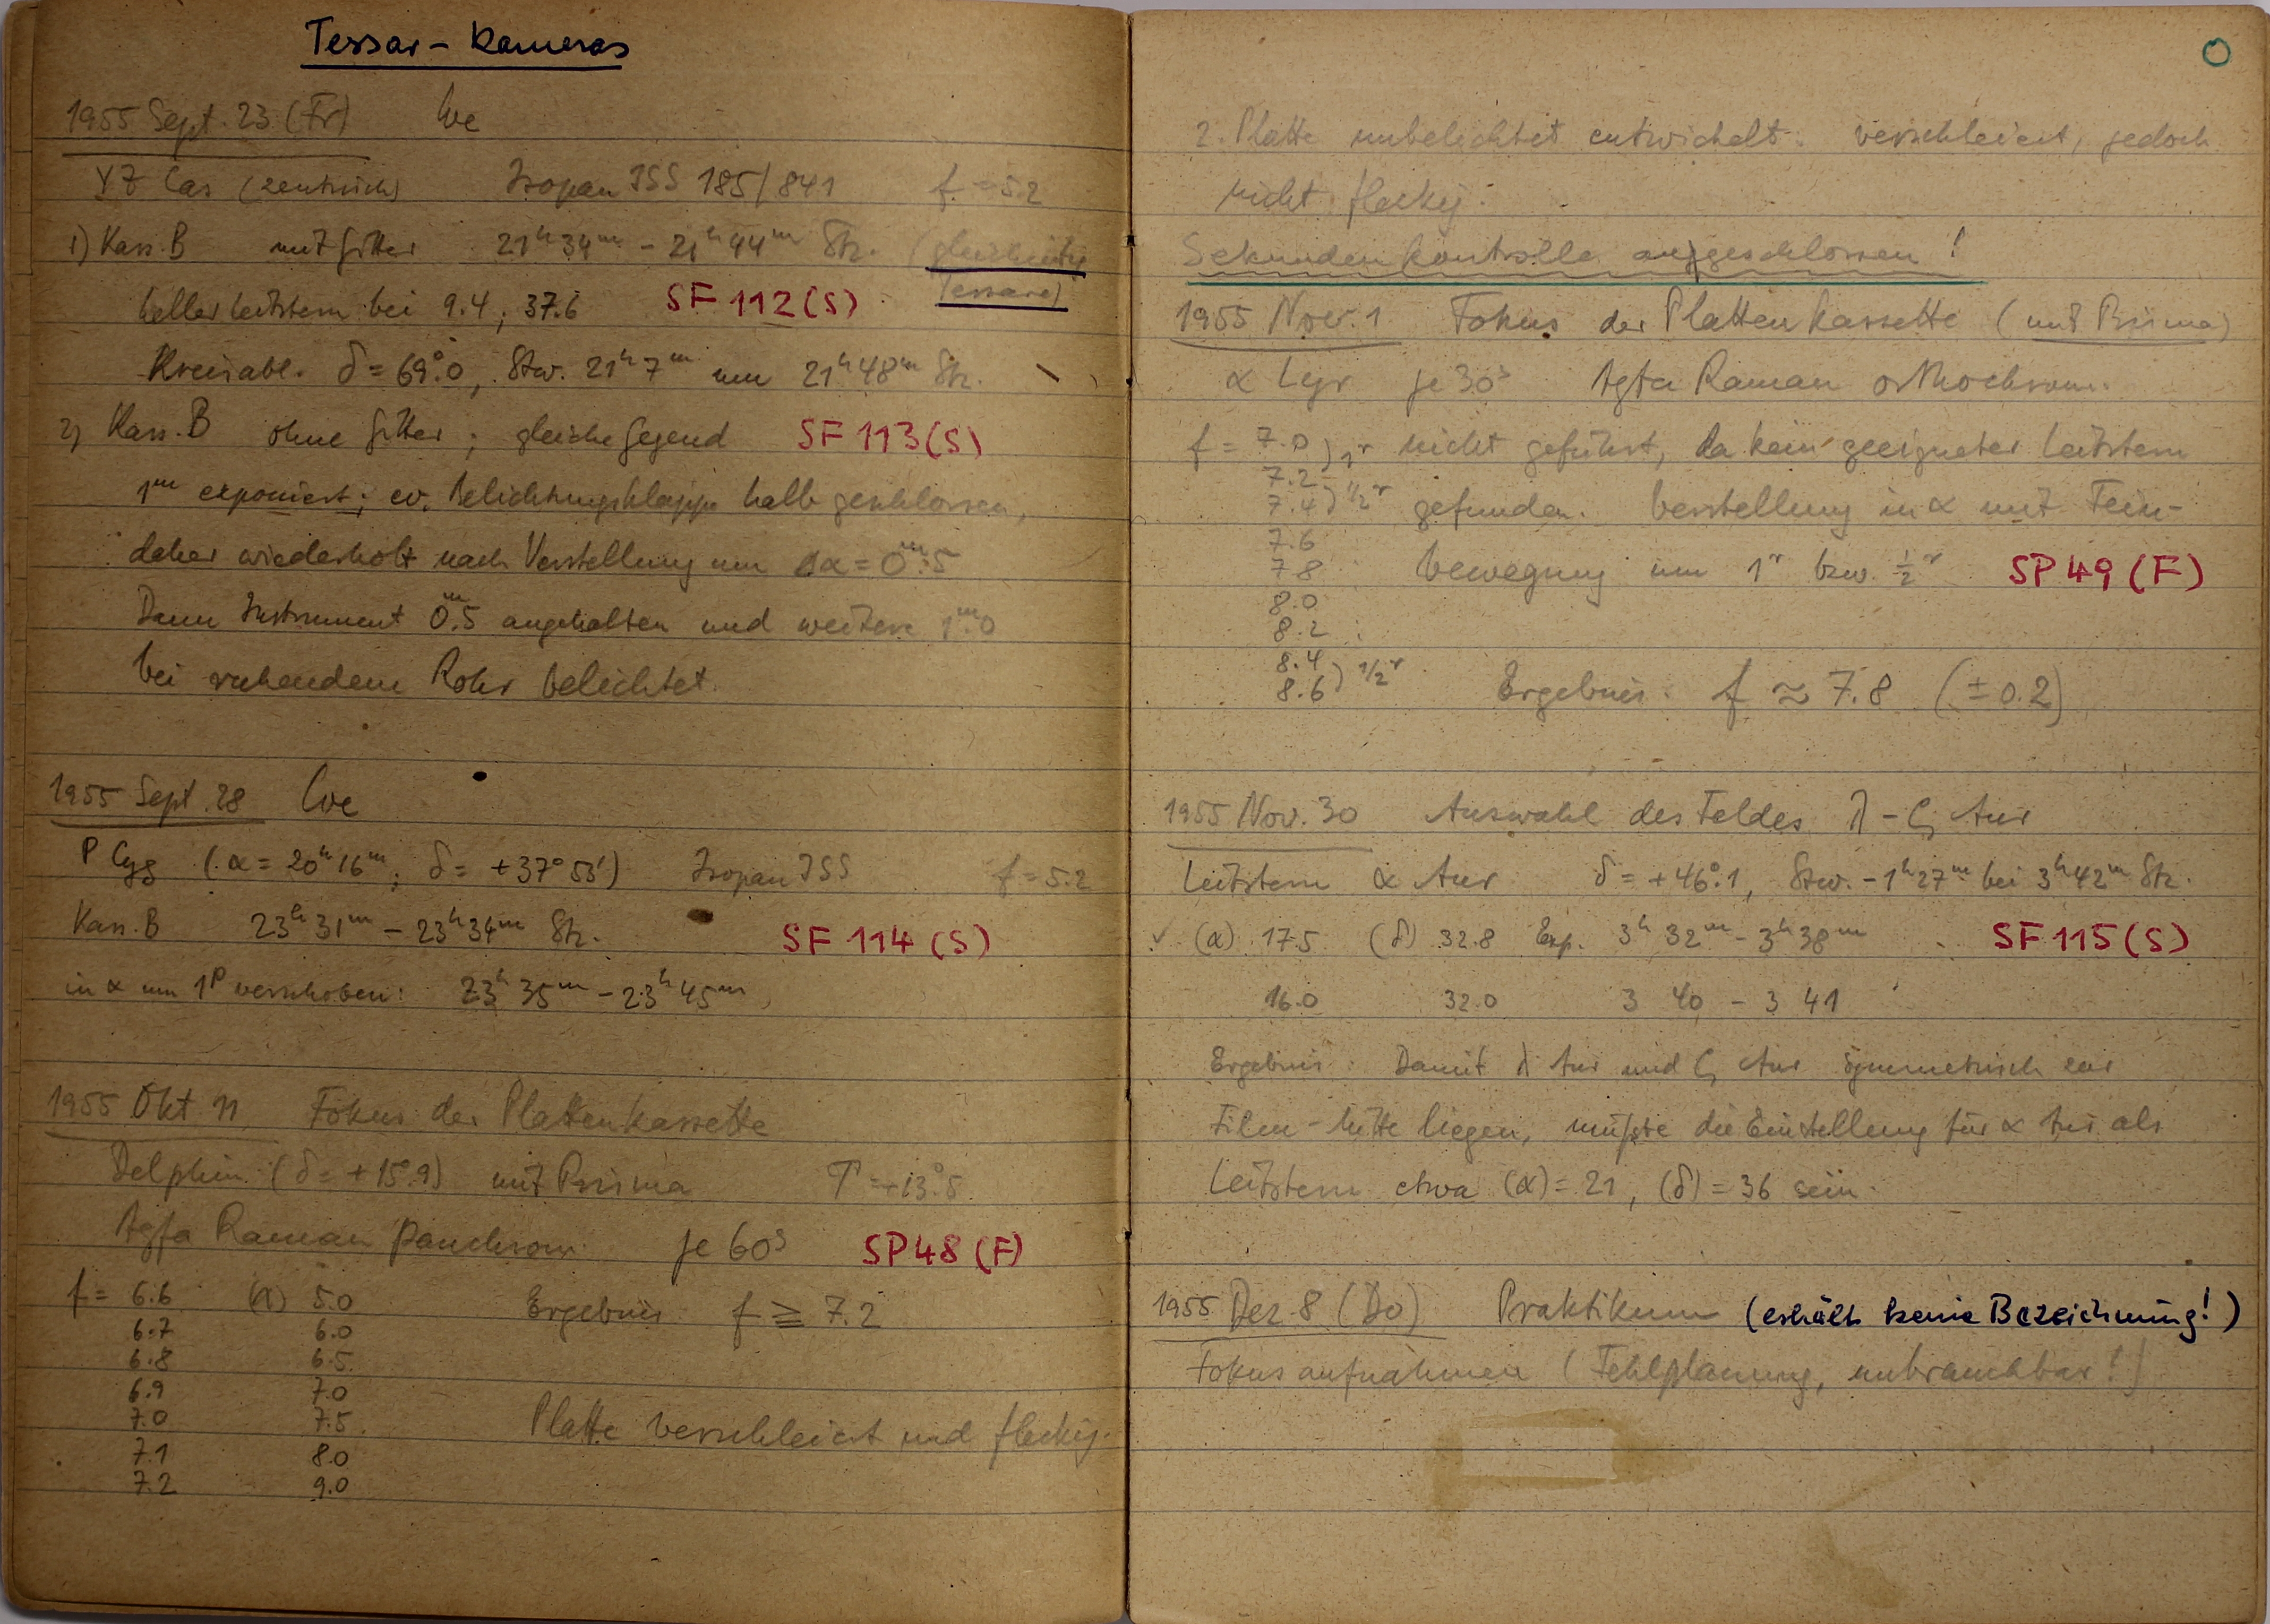 Tessar-Kameras
1955 Sept. 23 (Fr) We
YZ Cas (zentrisch) Isopan ISS 185/841 f = 5.2
1) Kass. B mit Gitter 21ʰ34ᵐ - 21ʰ44ᵐ Stz. (gleichzeitig
Tessare)
heller Leitstern bei 9.4, 37.6 SF 112 (S)
Kreisabl. δ = 69°.0, Stw. 21ʰ7ᵐ um 21ʰ48ᵐ Stz.
2) Kass. B ohne Gitter; gleiche Gegend SF 113 (S)
1ᵐ exponiert; ev. Belichtungsklappe halb geschlossen,
daher wiederholt nach Verstellung um Δα = 0ᵐ.5
Dann Instrument 0ᵐ.5 angehalten und weitere 1ᵐ.0
bei ruhendem Rohr belichtet.
1955 Sept. 28 We
P Cyg (α = 20ʰ16ᵐ; δ = +37°53') Isopan ISS f = 5.2
Kass. B 23ʰ31ᵐ - 23ʰ34ᵐ Stz. SF 114 (S)
in α um 1ᵖ verschoben: 23ʰ35ᵐ - 23ʰ45ᵐ
1955 Okt 11 Fokus der Plattenkassette
Delphin (δ = +15°.9) mit Prisma T = +13°.5
Agfa Raman panchrom. je 60ˢ SP 48 (F)
f = 6.6 (α) 5.0 Ergebnis f ≧ 7.2
6.7 6.0
6.8 6.5
6.9 7.0
7.0 7.5 Platte verschleiert und fleckig.
7.1 8.0
7.2 9.0
2. Platte unbelichtet entwickelt: verschleiert, jedoch
nicht fleckig.
Sekundenkontrolle angeschlossen!
1955 Nov. 1 Fokus der Plattenkassette (mit Prisma)
α Lyr je 30ˢ Agfa Raman orthochrom.
f = 7.0 ) 1ʳ nicht geführt, da kein geeigneter Leitstern
7.2
7.4 ) 1/2ʳ gefunden. Verstellung in α mit Fein-
7.6
7.8 bewegung um 1ʳ bzw. 1/2ʳ SP 49 (F)
8.0
8.2
8.4 ) 1/2ʳ
8.6 Ergebnis: f ≈ 7.8 (± 0.2)
1955 Nov. 30 Auswahl des Feldes λ - ζ Aur
Leitstern α Aur δ = +46°.1, Stw. -1ʰ27ᵐ bei 3ʰ42ᵐ Stz.
✓ (α) 17.5 (δ) 32.8 Exp. 3ʰ32ᵐ - 3ʰ38ᵐ SF 115 (S)
16.0 32.0 3 40 - 3 41
Ergebnis: Damit λ Aur und ζ Aur symmetrisch zur
Film-Mitte liegen, müßte die Einstellung für α Aur als
Leitstern etwa (α) = 21, (δ) = 36 sein.
1955 Dez 8 (Do) Praktikum (erhält keine Bezeichnung!)
Fokusaufnahmen (Fehlplanung, unbrauchbar!)